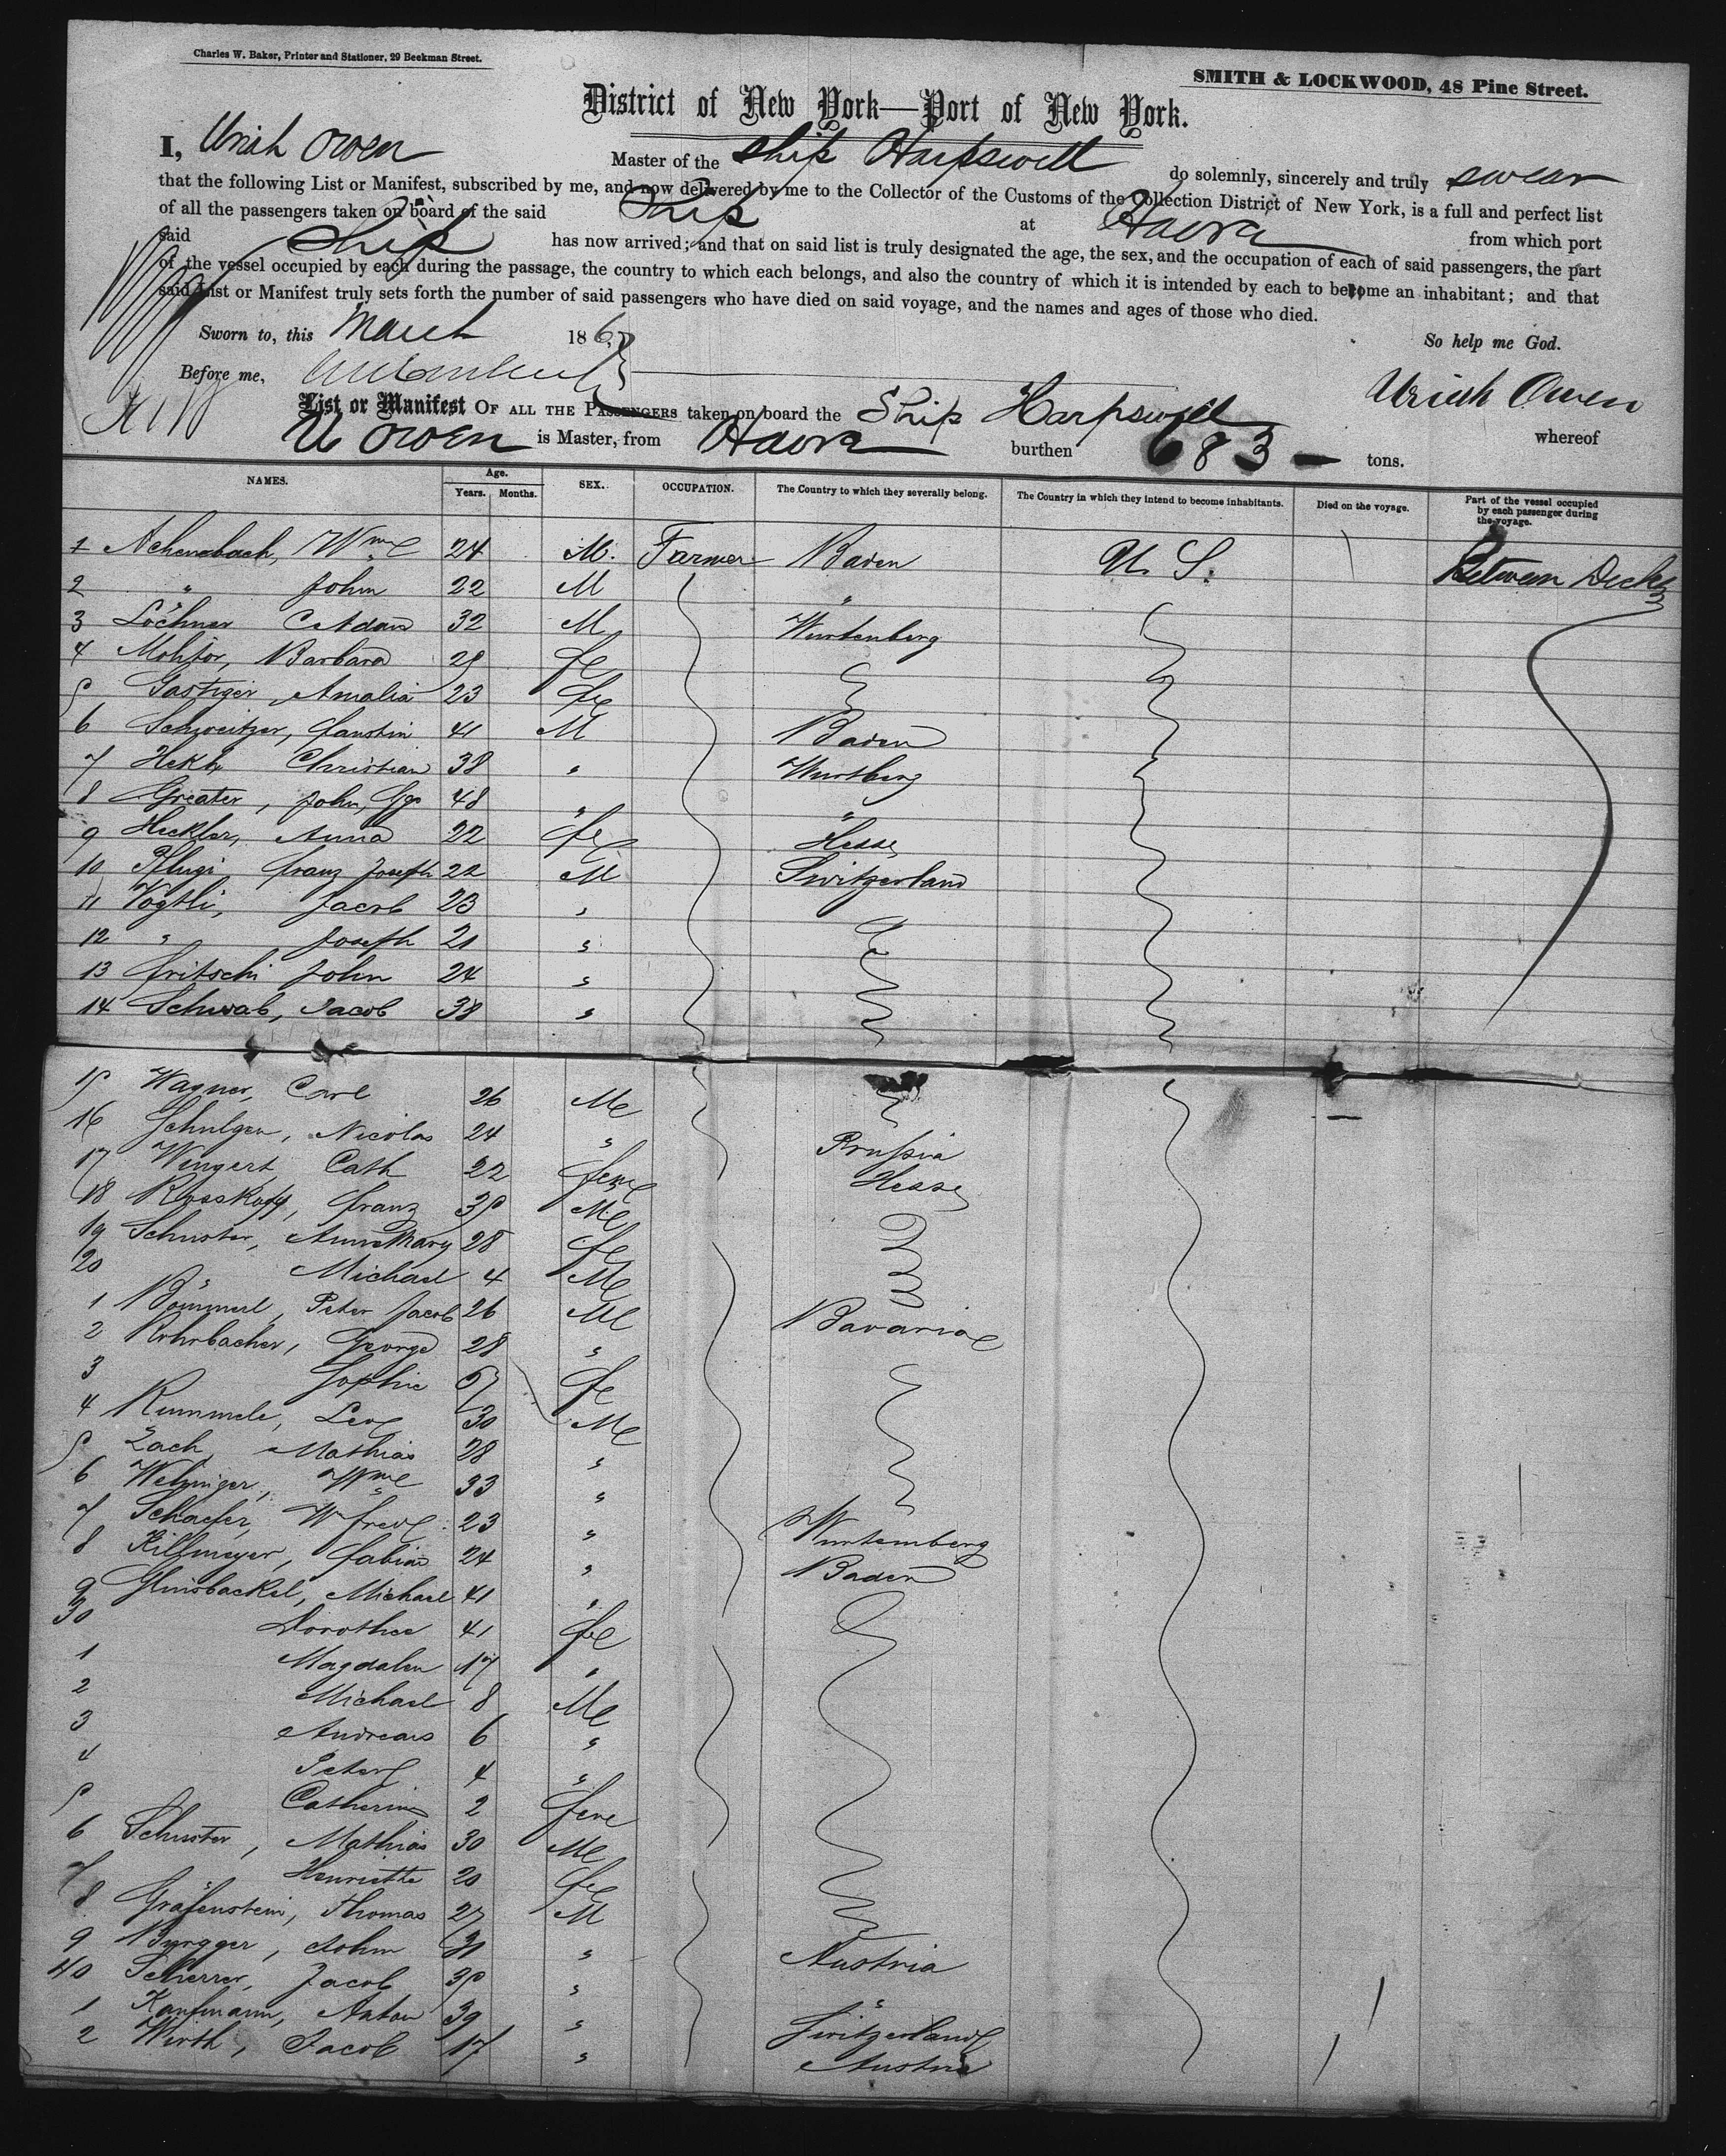 Charles W. Baker, Printer and Stationer, 29 Beekman Street.
SMITH & LOCKWOOD, 48 Pine Street.
District of New York—Port of New York.
I, Uriah Owen Master of the Ship Harpswell do solemnly, sincerely and truly swear
that the following List or Manifest, subscribed by me, and now delivered by me to the Collector of the Customs of the Collection District of New York, is a full and perfect list
of all the passengers taken on board of the said Ship at Havre from which port
said Ship has now arrived; and that on said list is truly designated the age, the sex, and the occupation of each of said passengers, the part
of the vessel occupied by each during the passage, the country to which each belongs, and also the country of which it is intended by each to become an inhabitant; and that
said List or Manifest truly sets forth the number of said passengers who have died on said voyage, and the names and ages of those who died.
Sworn to, this March 186 So help me God.
Before me, Uriah Owen
List or Manifest OF ALL THE PASSENGERS taken on board the Ship Harpswell whereof
U Owen is Master, from Havre burthen 683 — tons.
NAMES. Age. Years. Months. SEX. OCCUPATION. The Country to which they severally belong. The Country in which they intend to become inhabitants. Died on the voyage. Part of the vessel occupied by each passenger during the voyage.
1 Achenabach, Wm 24 M. Farmer Baden U. S. Between Decks
2 " John 22 M "
3 Löchner Adam 32 M Wurtenberg
4 Molitor, Barbara 29 fe
5 Gastiger, Amalia 23 fe
6 Schweitzer, Faustin 41 M Baden
7 Christian 38 " Wurtberg
8 Greater, John, Geo 48 " "
9 Heckler, Anna 22 fe Hesse
10 Pflugi Franz Joseph 22 M Switzerland
11 Vögtli, Jacob 23 "
12 " Joseph 21 "
13 Fritschi John 24 "
14 Schwab, Jacob 38 "
15 Wagner, Carl 26 M
16 Schulgen, Nicolas 24 " Prussia
17 Wingert, Cath 22 fem Hesse
18 Rosskopf, Franz 35 M
19 Schuster, Anna Mary 28 fe
20 " Michael 4 M
1 Bömmerl, Peter Jacob 26 M Bavaria
2 Rohrbacher, George 28 "
3 Sophie fe
4 Rummele, Leo 30 M
5 Zach, Mathias 28 "
6 Wehinger, Wm 33 "
7 Schaefer, W fred 23 " Wurtemberg
8 Killmeyer, Fabian 24 " Baden
9 Michael 41 "
30 Dorothee 41 fe
1 Magdalen 17 "
2 Michael 8 M
3 Andreas 6 "
4 Peter 4 "
5 Catherine 2 fem
6 Schuster, Mathias 30 M
7 Henriette 20 fe
8 Gräfenstein, Thomas 27 M
9 John 31 " Austria
40 Scherrer, Jacob 35 " "
1 Kaufmann, Anton 39 " Switzerland
2 Wirth, Jacob 17 " Austria